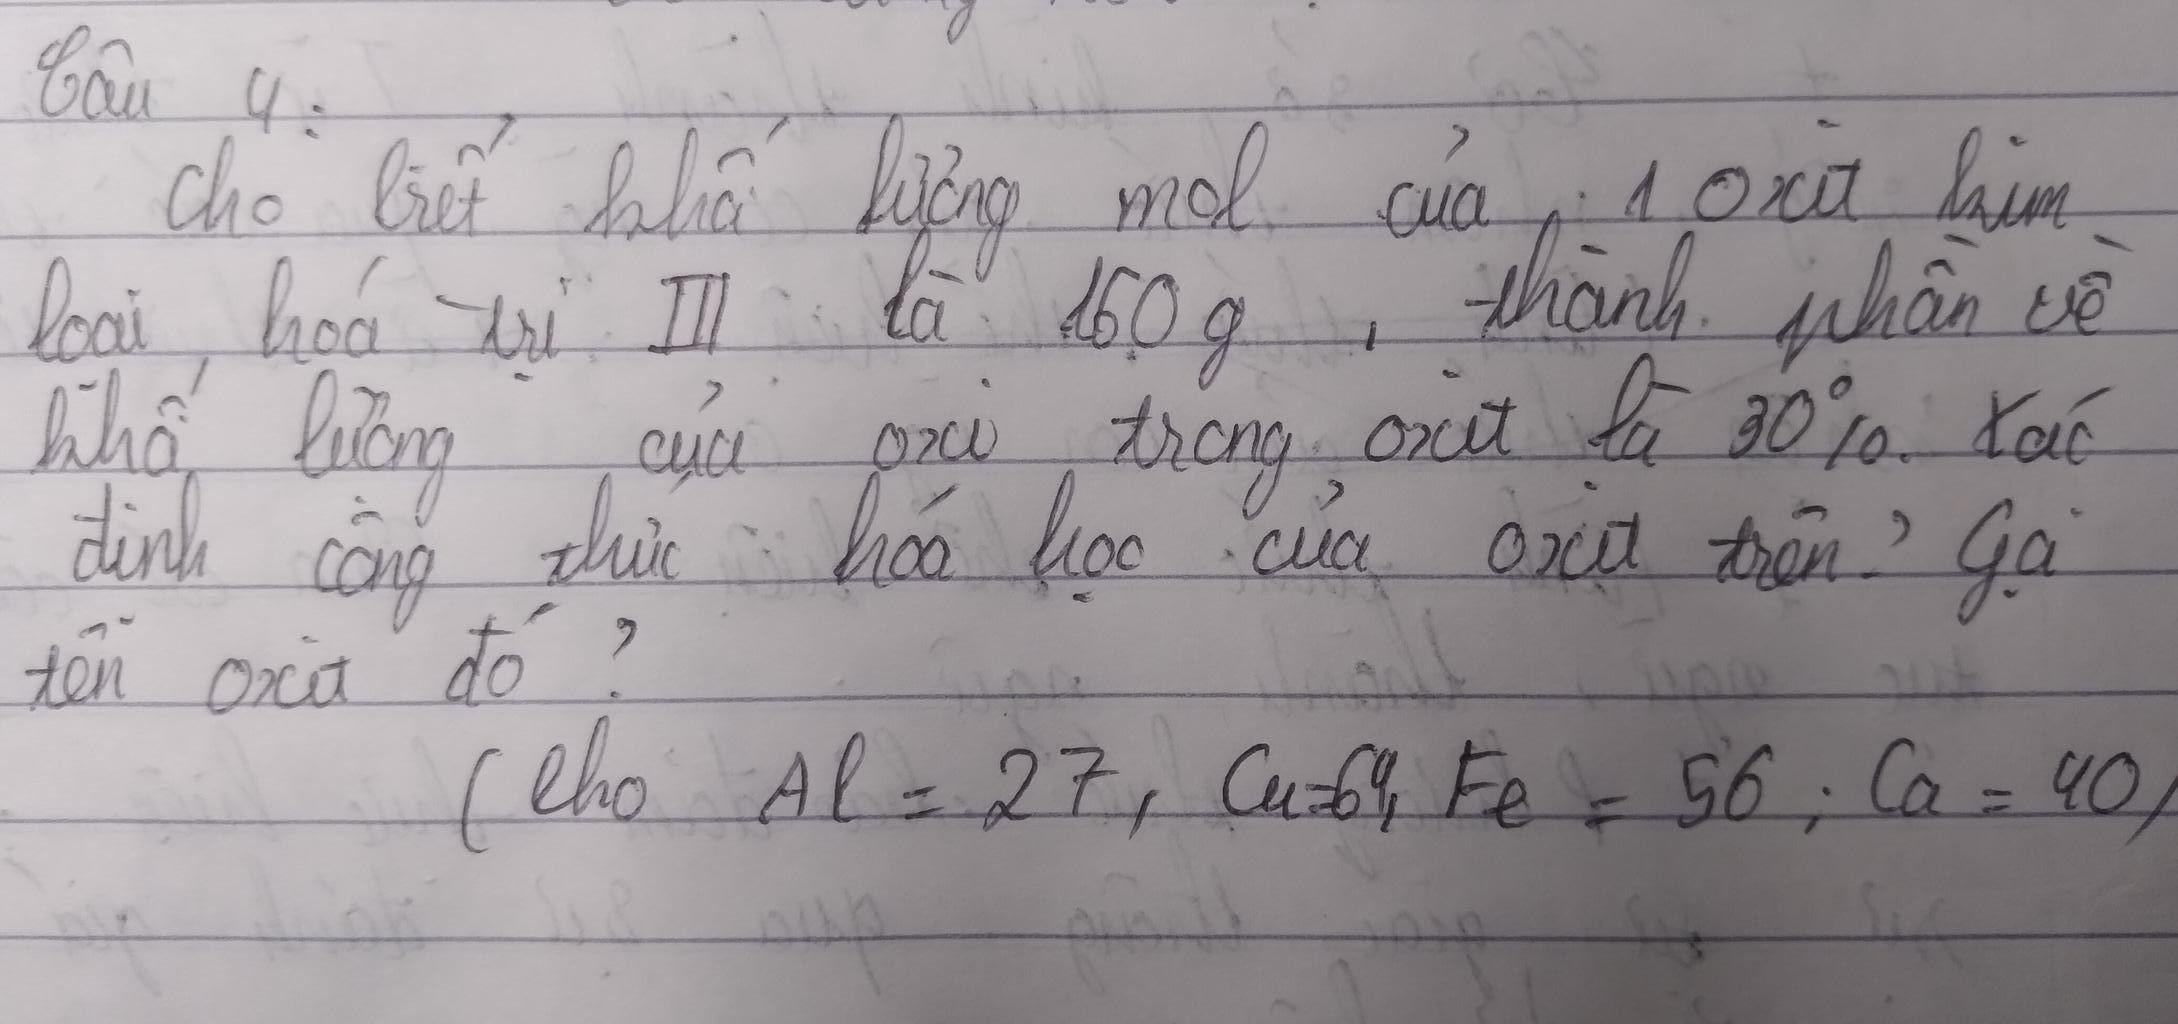 Câu 4:
Cho biết khối lượng mol của 1 oxit kim
loại hoá trị III là 160g, thành phần về
khối lượng của oxi trong oxit là 30%. Xác
định công thức hoá học của oxit trên? Gọi
tên oxit đó?
(Cho Al = 27, Cu=64, Fe = 56; Ca = 40)